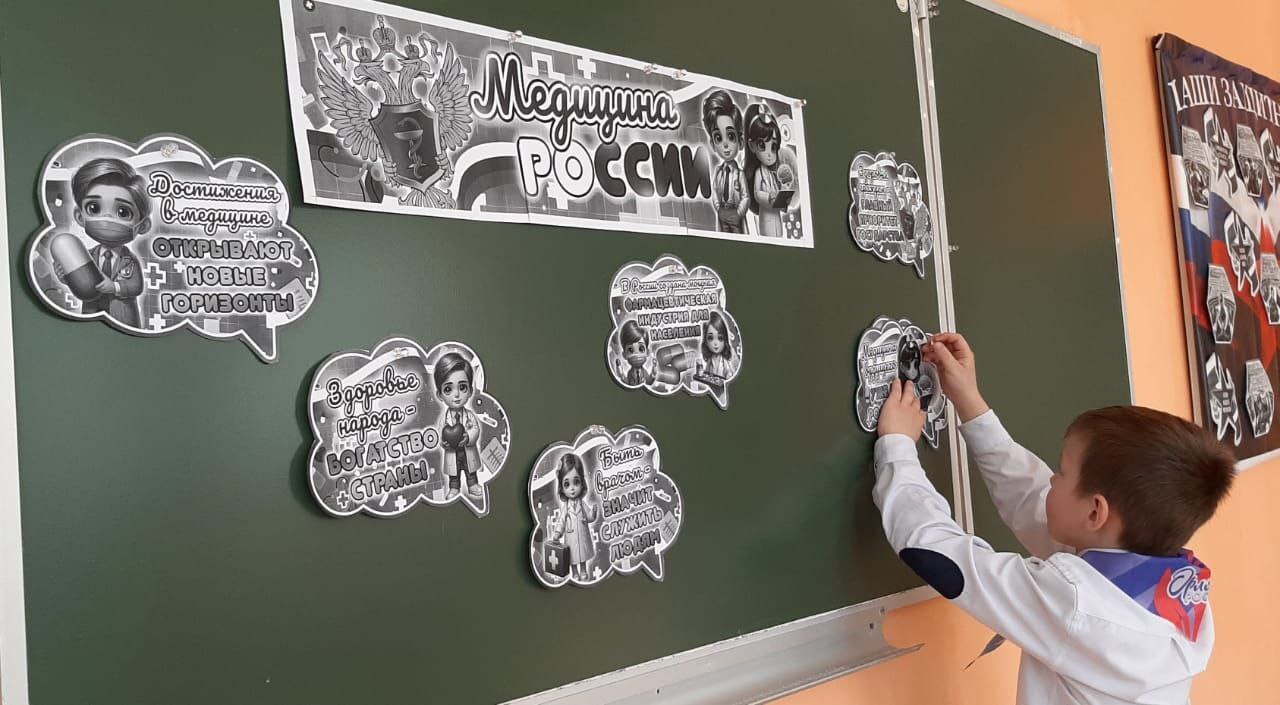 Медицина
РОССИИ
Достижения
в медицине
ОТКРЫВАЮТ
НОВЫЕ
ГОРИЗОНТЫ
Здоровье
народа -
БОГАТСТВО
СТРАНЫ
В России создана мощная
ФАРМАЦЕВТИЧЕСКАЯ
ИНДУСТРИЯ ДЛЯ
НАСЕЛЕНИЯ
Быть
врачом -
ЗНАЧИТ
СЛУЖИТЬ
ЛЮДЯМ
ГЛАВНЫЙ
ПРИОРИТЕТ
ГОСУДАРСТВА
Медицина
НАШИ ЗАЩИТН